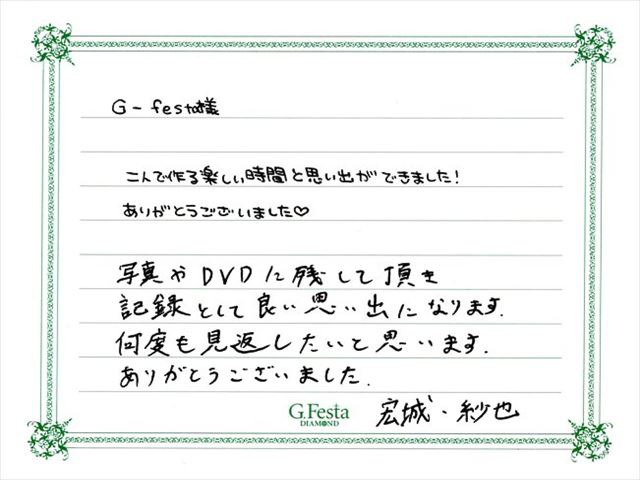 G-festa様
こんで作る楽しい時間と思い出ができました!
ありがとうございました♡
写真やDVDに残して頂き
記録として良い思い出になります.
何度も見返したいと思います.
ありがとうございました.
宏城・紗也
G.Festa
DIAMOND